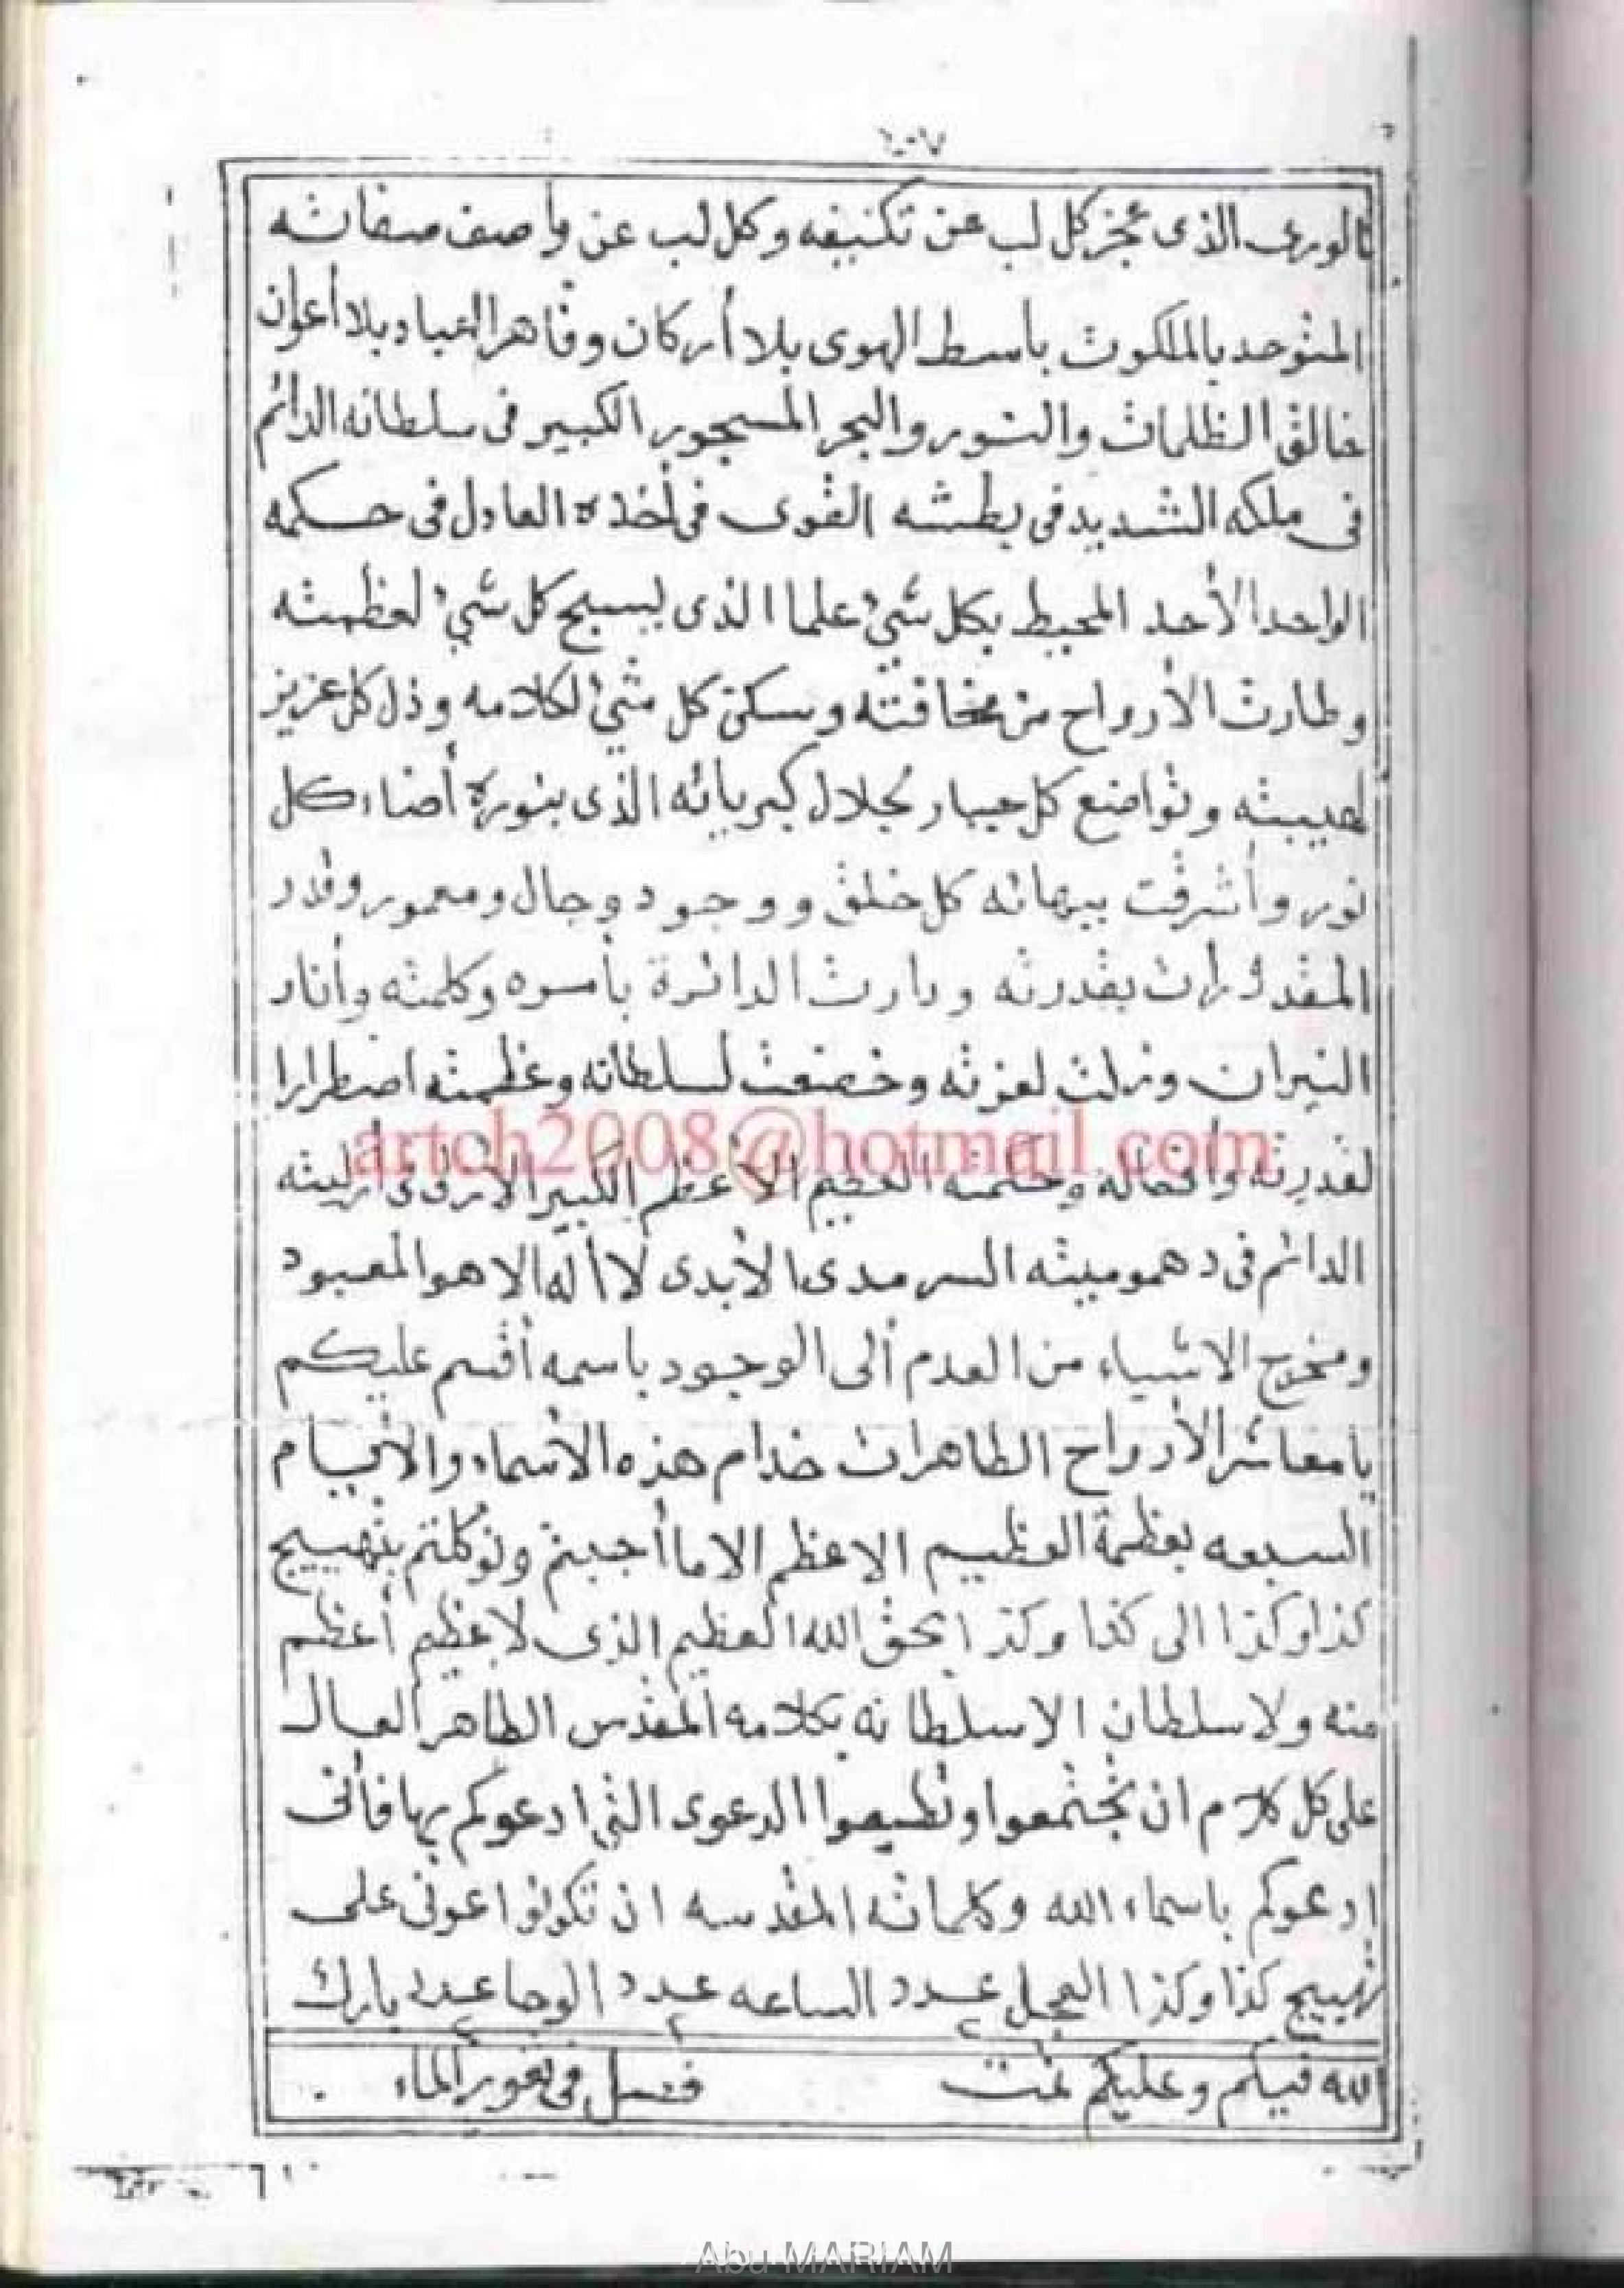 ٤٠٧
الورى الذى عجز كل لب عن تكنيفه وكل لب عن وأصف صفاته
المتوحد بالملكوت باسط الهوى بلا أركان وقاهر العباد بلا أعوان
خالق الظلمات والنور والبحر المسجور الكبير فى سلطانه الدائم
فى ملكه الشديد فى بطشه القوى فى أخذه العادل فى حكمه
الواحد الأحد المحيط بكل شئ علما الذى يسبح كل شئ لعظمته
وطارت الأرواح من مخافته وسكن كل شئ لكلامه وذل كل عزيز
لهيبته وتواضع كل جبار لجلال كبريائه الذى بنوره أضاء كل
نور وأشرقت ببهائه كل خلق ووجود وجال ومعمور وقدر
المقدرات بقدرته ودارت الدائرة بأمره وكلمته وأنار
النيران وذلت لعزته وخضعت لسلطانه وعظمته اضطرارا
لقدرته وافضاله وحكمته العظيم الأعظم الكبير الازلى فى أزليته
الدائم فى دهموميته السرمدى الأبدى لا أله الا هو المعبود
ومخرج الاشياء من العدم ألى الوجود باسمه أقسم عليكم
يا معاشر الأرواح الطاهرات خدام هذه الأسماء والأقسام
السبعه بعظمة العظيم الاعظم الا ما أجبتم وتوكلتم بتهييج
كذا وكذا الى كذا وكذا بحق الله العظيم الذى لا عظيم أعظم
منه ولا سلطان الا سلطانه بكلامه المقدس الطاهر العال
على كل كلام ان تجتمعوا وتطيعوا الدعوى التى ادعوكم بها فأنى
ادعوكم باسماء الله وكلماته المقدسه ان تكونوا عونى على
تهييج كذا وكذا العجل عدد ٢ الساعه عدد ٢ الوحا عدد ٢ بارك
الله فيكم وعليكم تمت فصل فى تغوير الماء
artch2008@hotmail.com
Abu-MARIAM